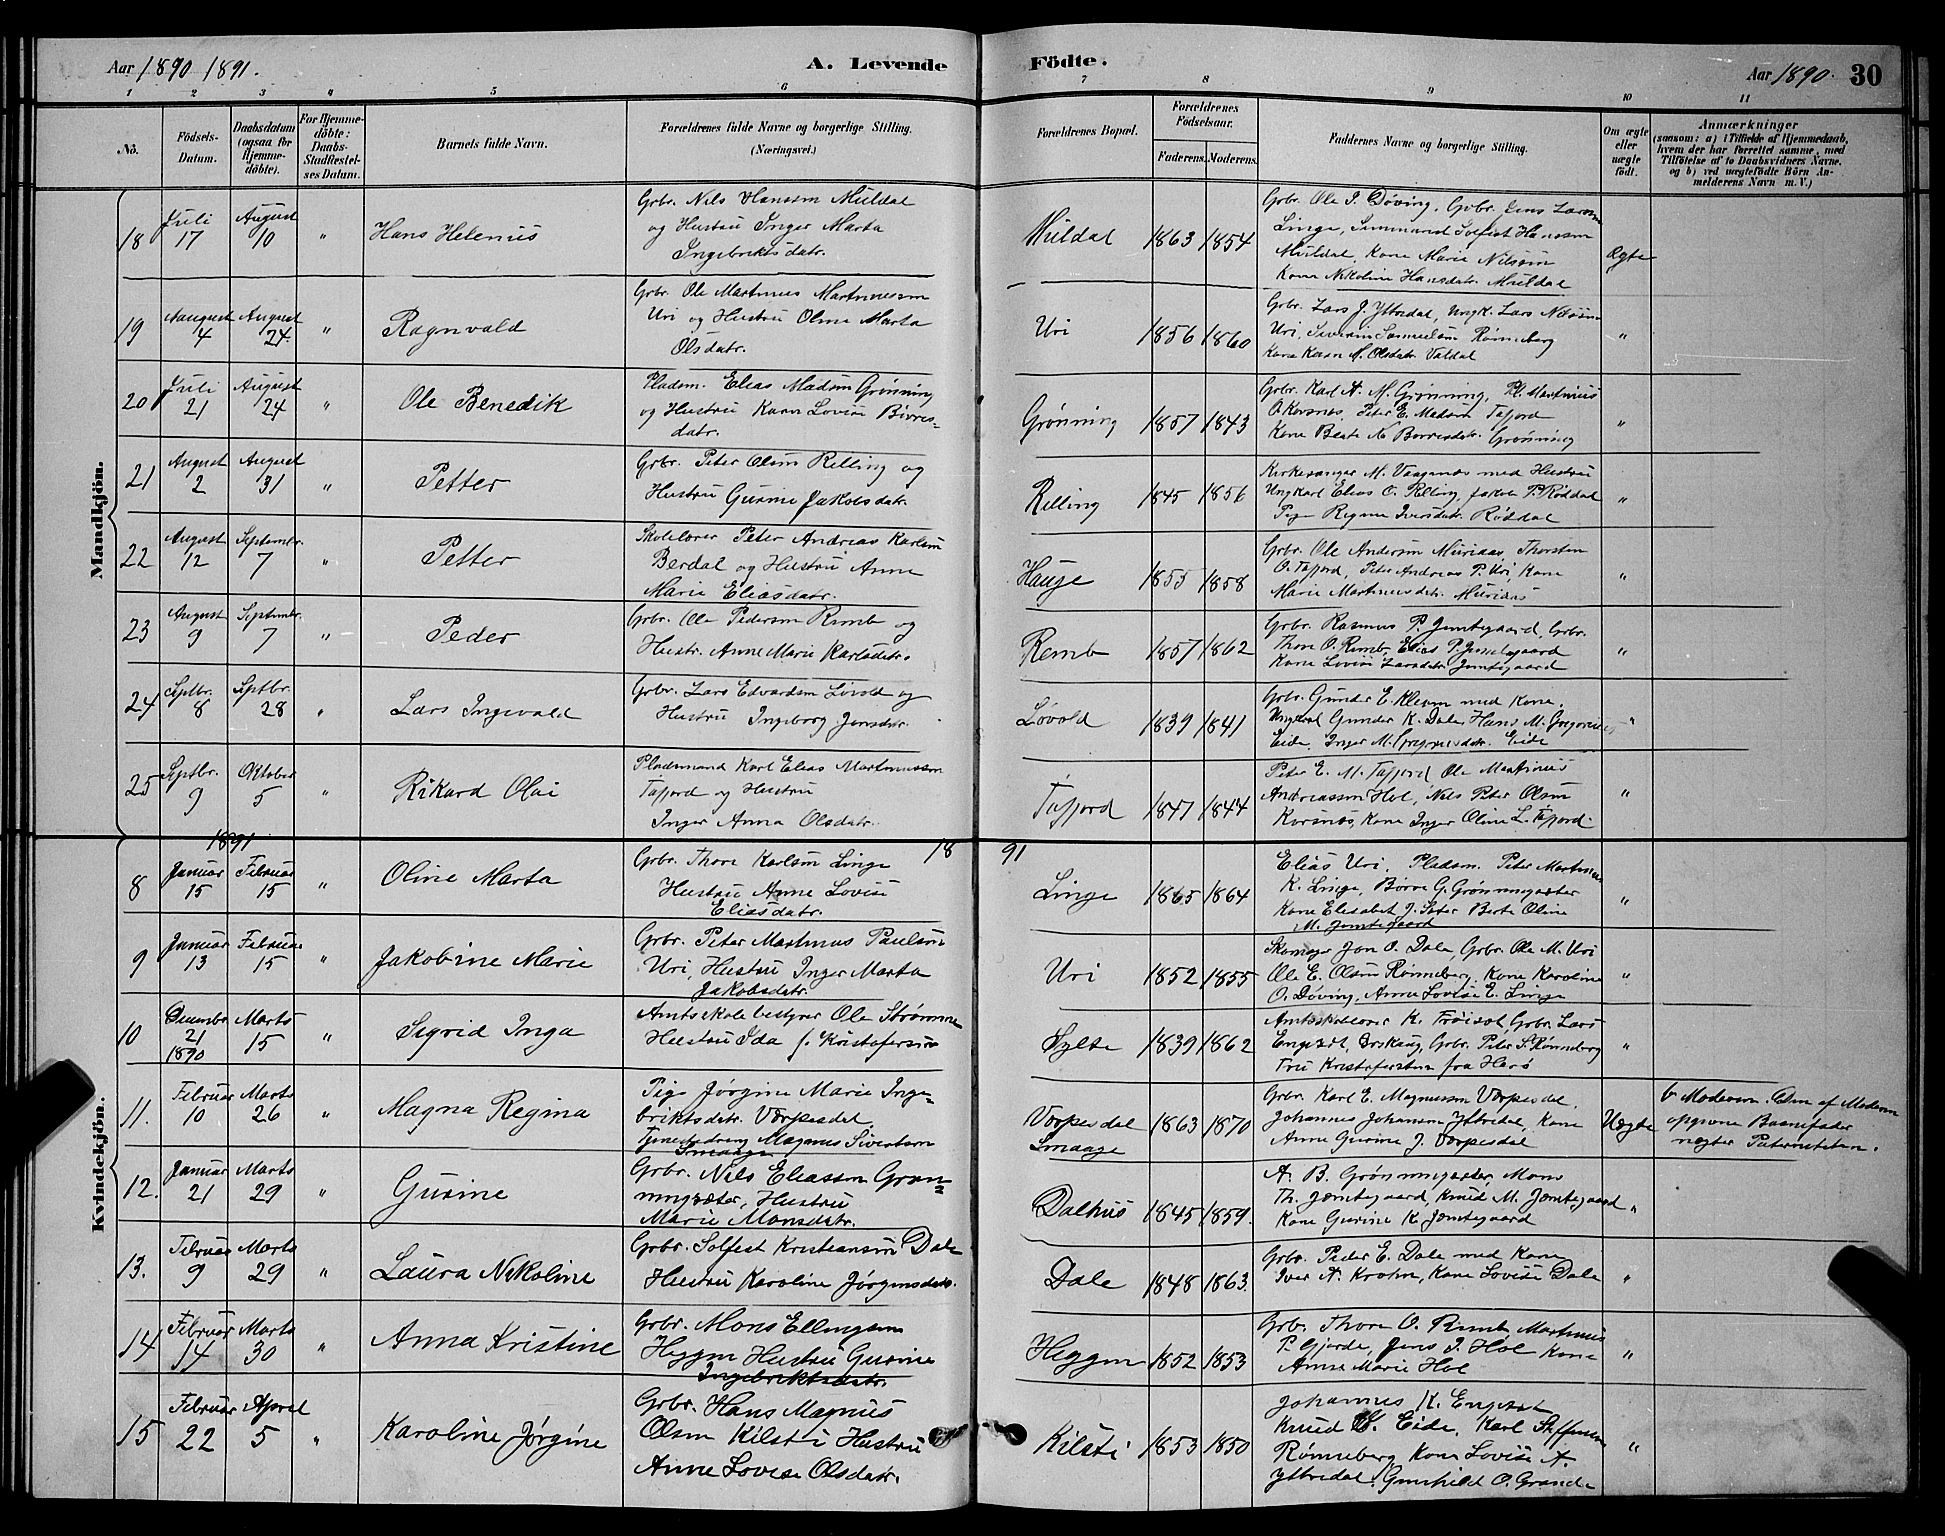 Aar 1890 1891.
A. Levende
Födte.
Aar 1890. 30
1 2 3 4 5 6 7 8 9 10 11
No.
Födsels-Datum.
Daabsdatum (ogsaa for Hjemmedöbte).
For Hjemmedöbte: Daabs-Stadfæstelses Datum.
Barnets fulde Navn.
Forældrenes fulde Navne og borgerlige Stilling.
(Næringsvei.)
Forældrenes Bopæl.
Forældrenes Födselsaar.
Faderens. Moderens.
Faddernes Navne og borgerlige Stilling.
Om ægte eller uægte födt.
Anmærkninger
(saasom: a) i Tilfælde af Hjemmedaab,
hvem der har forrettet samme, med
Tilföielse af to Daabsvidners Navne.
og b) ved uægtefödte Börn An-
melderens Navn m. V.)
Mandkjön.
18 Juli 17 August 10 " Hans Helenius
Gbr. Nils Hanssen Muldal
og Hustru Inger Marta
Ingebriktsdatr.
Muldal 1863 1854
Gbr. Ole J. Døving, Gbr. Jens Larsen
Linge, Solfest Hanssen
Muldal, Kone Marie Nilssen
Kone Nikoline Hansdatr. Muldal
Ægte
19 Aaugust 4 August 24 " Ragnvald
Gbr. Ole Martinus Martinussen
Uri og Hustru Oline Marta
Olsdatr.
Uri 1856 1860
Gbr. Lars J. Ytredal, Ungk. Lars Nilssen
Uri, Severin Samuelsen Rønneberg
Kone Karn N. Olsdatr Valdal
"
20 Juli 21 August 24 " Ole Benedik
Pladsm. Elias Madsen Grønning
og Hustru Karn Lovise Børres=
datr.
Grønning 1857 1843
Gbr. Karl A. M. Grønning, Pl. Martinus
O. Korsnes, Peter E. Madsen Tafjord
Kone Berte N. Børresdatr. Grønning
"
21 August 2 August 31 " Petter
Gbr. Peter Olsen Relling og
Hustru Gurine Jakobsdatr.
Relling 1845 1856
Kirkesanger M. Vaagenes med Hustru
Ungkarl Elias O. Relling, Jakob P. Røddal
Pige Regine Iversdatr. Røddal
"
22 August 12 Septembr. 7 " Petter
Skolelærer Peter Andreas Karlsen
Berdal og Hustru Anne
Marie Eliasdatr.
Hauge 1855 1858
Gbr. Ole Andersen Muriaas, Thorsten
O. Tafjord, Peter Andreas P. Uri, Kone
Marie Martinusdatr. Muriaas
"
23 August 9 Septembr. 7 " Peder
Gbr. Ole Pedersen Remb og
Hustr. Anne Marie Karlsdatr.
Remb 1857 1862
Gbr. Rasmus P. Jemtegaard, Gbr.
Thore O. Remb, Elias P. Jemtegaard
Kone Lovise Larsdatr Jemtegaard
"
24 Septbr. 8 Septbr. 28 " Lars Ingevald
Gbr. Lars Edvardsen Løvold og
Hustru Ingeborg Jensdatr.
Løvold 1839 1841
Gbr. Gunder E. Kleven med Kone,
Ungkarl Gunder K. Dale, Hans M. Gregorius
Eide, Inger M. Gregoriusdatr. Eide
"
25 Septbr. 9 Oktober 5 " Rikard Olai
Pladsmand Karl Elias Martinussen
Tafjord og Hustru
Inger Anna Olsdatr.
Tafjord 1847 1844
Peter E. M. Tafjord, Ole Martinus
Andreassen Hol, Nils Peter Olsen
Korsnes, Kone Inger Oline L. Tafjord.
"
1891 1891
Kvindekjön.
8 Januar 15 Februar 15 " Oline Marta
Gbr. Thore Karlsen Linge
Hustru Anne Lovise
Eliasdatr.
Linge 1865 1864
Elias Uri, Pladsm. Peter Martinus
K. Linge, Børre G. Grønningsæter
Kone Elisabet J. Sæter Berte Oline
M. Jemtegaard
"
9 Januar 13 Februar 15 " Jakobine Marie
Gbr. Peter Martinus Paulsen
Uri, Hustru Inger Marta
Jakobsdatr.
Uri 1852 1855
Skomager Jon O. Dale, Gbr. Ole M. Uri
Ole E. Olsen Rønneberg, Kone Karoline
O. Døving, Anne Lovise E. Linge
"
10 Decembr 21 1890 Marts 15 " Sigrid Inga
Amtskolebestyrer Ole Strømme
Hustru Ida f. Kristofersen
Sylte 1839 1862
Amtsskolelærer K. Frøisat, Gbr. Lars
Engeset, Ørskaug, Gbr. Peter S. Rønneberg
Fru Kristofersen fra Hars
"
11. Februar 10 Marts 26 " Magna Regina
Pige Jørgine Marie Inge=
briktsdatr. Værpesdal,
Tjenestedreng Magnus Sivertsen
Smaage
Værpesdal Smaage 1863 1870
Gbr. Karl E. Magnussen Værpesdal,
Johannes Johansen Ytredal, Kone
Anne Gurine J. Værpesdal
Uægte
b Moderen. Den af Moderen
opgivne Barnefader
negter Paterniteten.
12. Januar 21 Marts 29 " Gurine
Gbr. Nils Eliassen Grøn=
ningsæter, Hustru
Marie Monsdatr.
Dalhus 1845 1859.
A. B. Grønningsæter, Mons
Th. Jemtegaard, Knud M. Jemtegaard
Kone Gurine K. Jemtegaard
"
13. Februar 9 Marts 29 " Laura Nikoline
Gbr. Solfest Kristiansen Dale
Hustru Karoline Jørgensdatr.
Dale 1848 1863.
Gbr. Peder E. Dale med Kone
Iver A. Krohn, Kone Lovise Dale
"
14 Februar 14 Marts 30 " Anna Kristine
Gbr. Mons Ellingsen
Heggen Hustru Gurine
Ingebriktsdatr.
Heggen 1852 1853
Gbr. Thore O. Remb Martinus
P. Gjerde, Jens J. Hol Kone
Anne Marie Hol
"
15 Februar 22 April 5 " Karoline Jørgine
Gbr. Hans Magnus
Olsen Kilsti Hustru
Anne Lovise Olsdatr.
Kilsti 1853 1850
Johannes K. Engeset
Knud S. Eide, Karl Steffensen
Rønneberg Kone Lovise A
Ytredal, Gunhild O. Grande
"